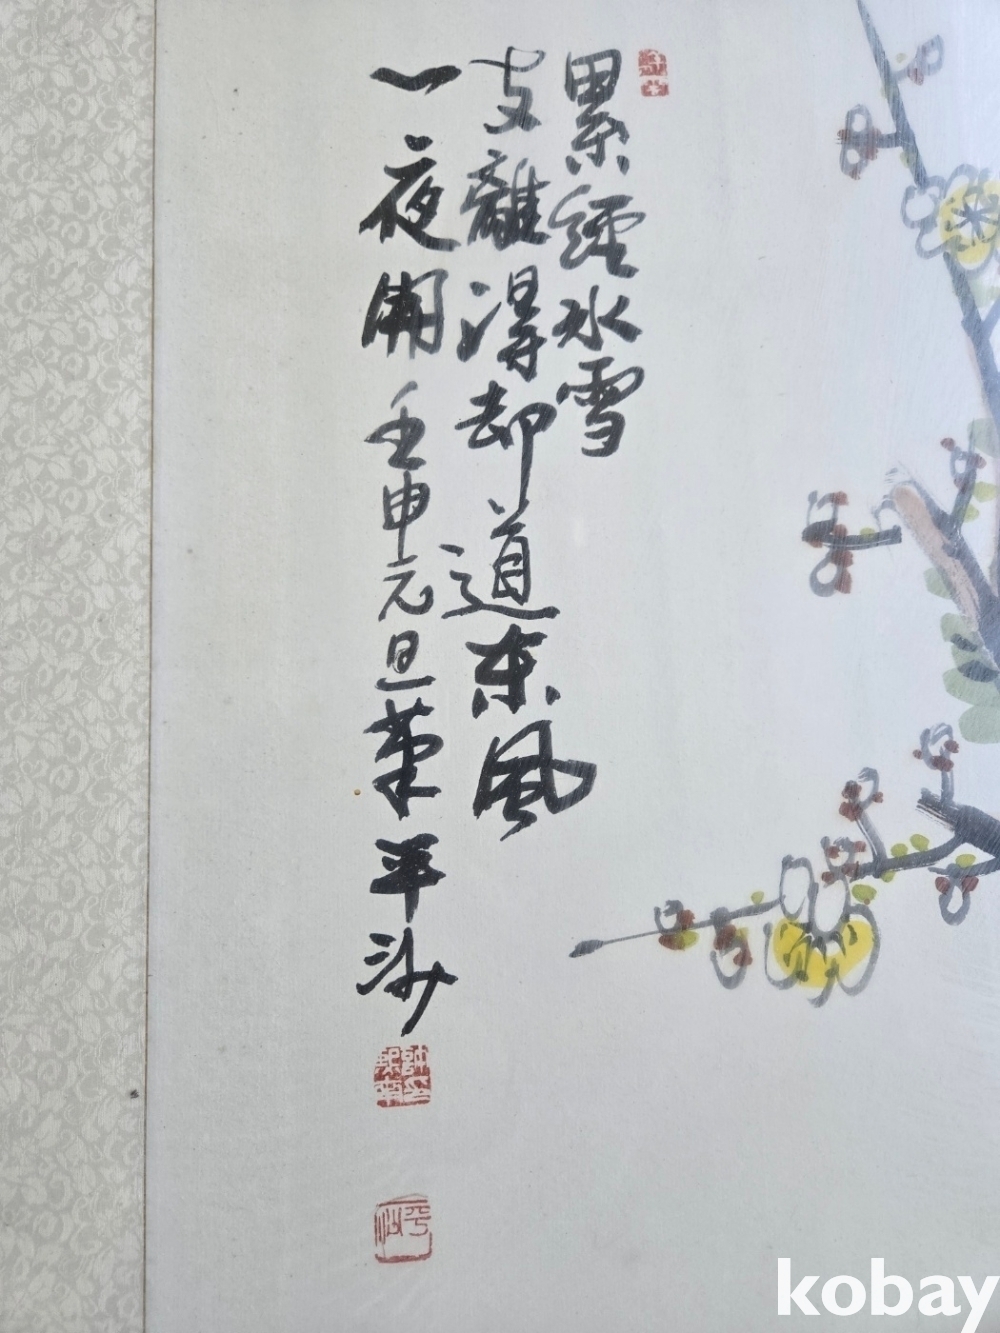 累經冰雪
支離得却道東風
一夜開 壬申元旦華平沙
kobay